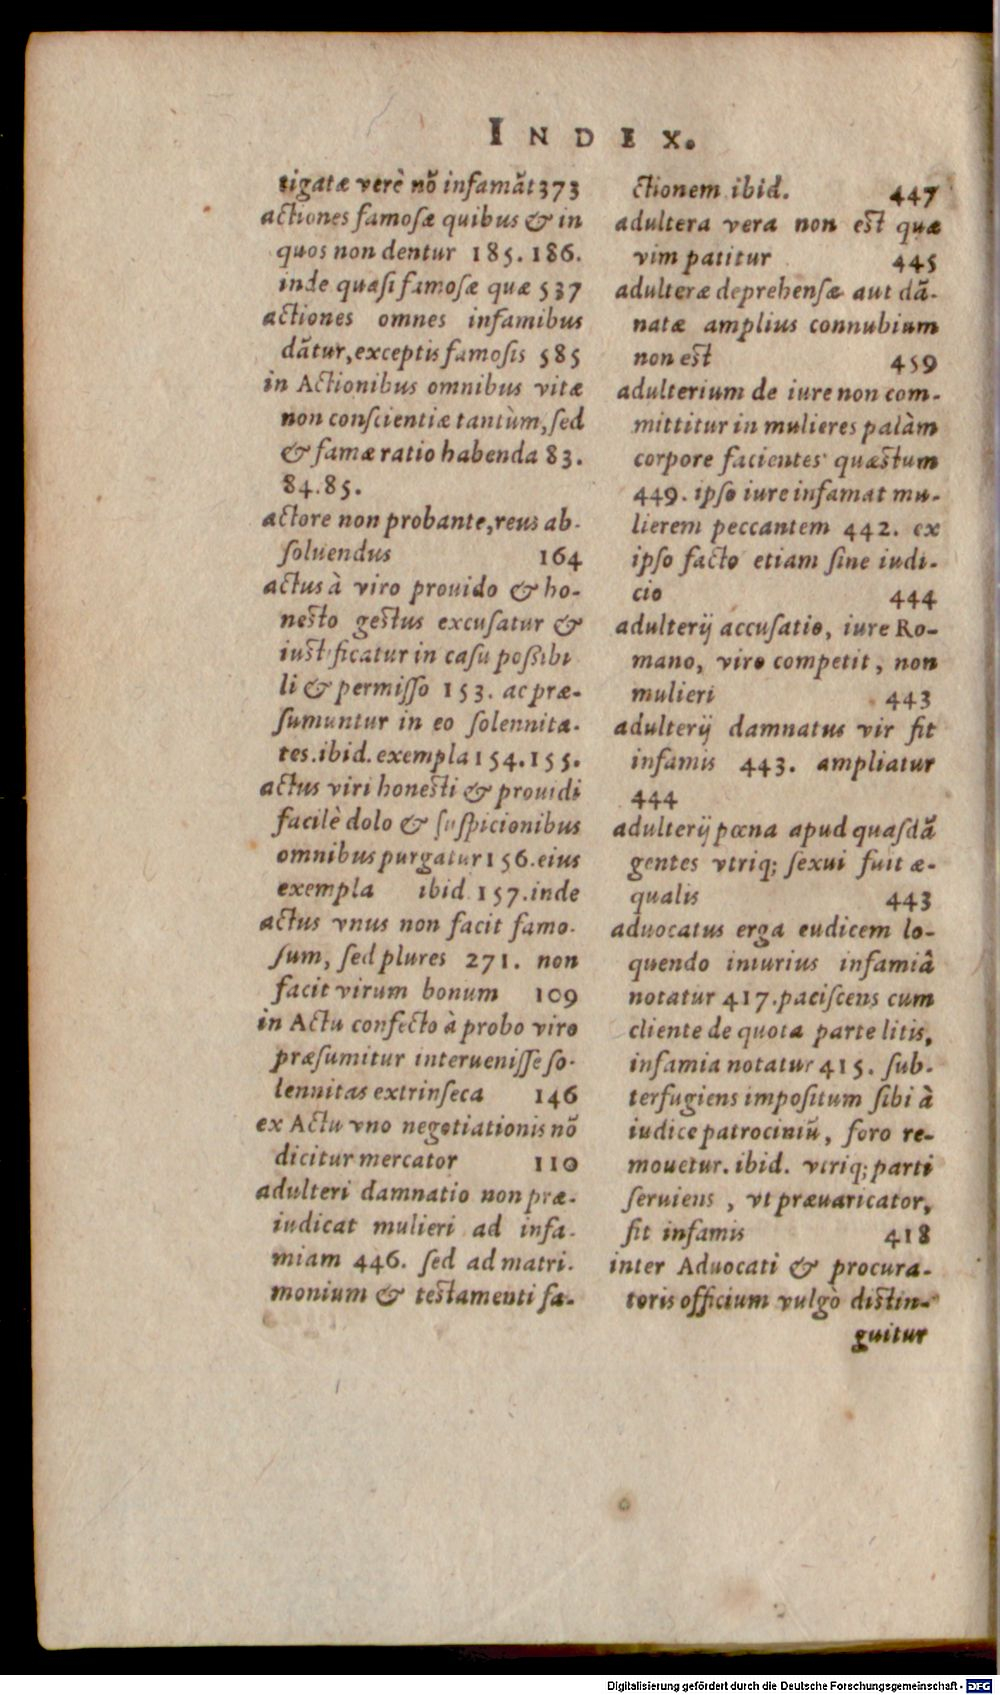 INDEX.
tigatæ verè nõ infamãt 373
actiones famosæ quibus & in
quos non dentur 185. 186.
inde quasi famosæ quæ 537
actiones omnes infamibus
dãtur, exceptis famosis 585
in Actionibus omnibus vitæ
non conscientiæ tantùm, sed
& famæ ratio habenda 83.
84.85.
actore non probante, reus ab-
soluendus 164
actus à viro prouido & ho-
nesto gestus excusatur &
iustificatur in casu possibi
li & permisso 153. ac præ-
sumuntur in eo solennita-
tes. ibid. exempla 154.155.
actus viri honesti & prouidi
facilè dolo & suspicionibus
omnibus purgatur 156. eius
exempla ibid 157. inde
actus vnus non facit famo-
sum, sed plures 271. non
facit virum bonum 109
in Actu confecto à probo viro
præsumitur interuenisse so-
lennitas extrinseca 146
ex Actu vno negotiationis nõ
dicitur mercator 110
adulteri damnatio non præ-
iudicat mulieri ad infa-
miam 446. sed ad matri-
monium & testamenti fa-
ctionem ibid. 447
adultera vera non est quæ
vim patitur 445
adulteræ deprehensæ aut dã-
natæ amplius connubium
non est 459
adulterium de iure non com-
mittitur in mulieres palàm
corpore facientes quæstum
449. ipso iure infamat mu-
lierem peccantem 442. ex
ipso facto etiam sine iudi-
cio 444
adulterij accusatio, iure Ro-
mano, viro competit, non
mulieri 443
adulterij damnatus vir fit
infamis 443. ampliatur
444
adulterij pœna apud quasdã
gentes vtriq; sexui fuit æ-
qualis 443
aduocatus erga eudicem lo-
quendo iniurius infamiâ
notatur 417. paciscens cum
cliente de quota parte litis,
infamia notatur 415. sub-
terfugiens impositum sibi à
iudice patrociniũ, foro re-
mouetur. ibid. vtriq; parti
seruiens, vt præuaricator,
fit infamis 418
inter Aduocati & procura-
toris officium vulgò distin-
guitur
Digitalisierung gefördert durch die Deutsche Forschungsgemeinschaft - DFG